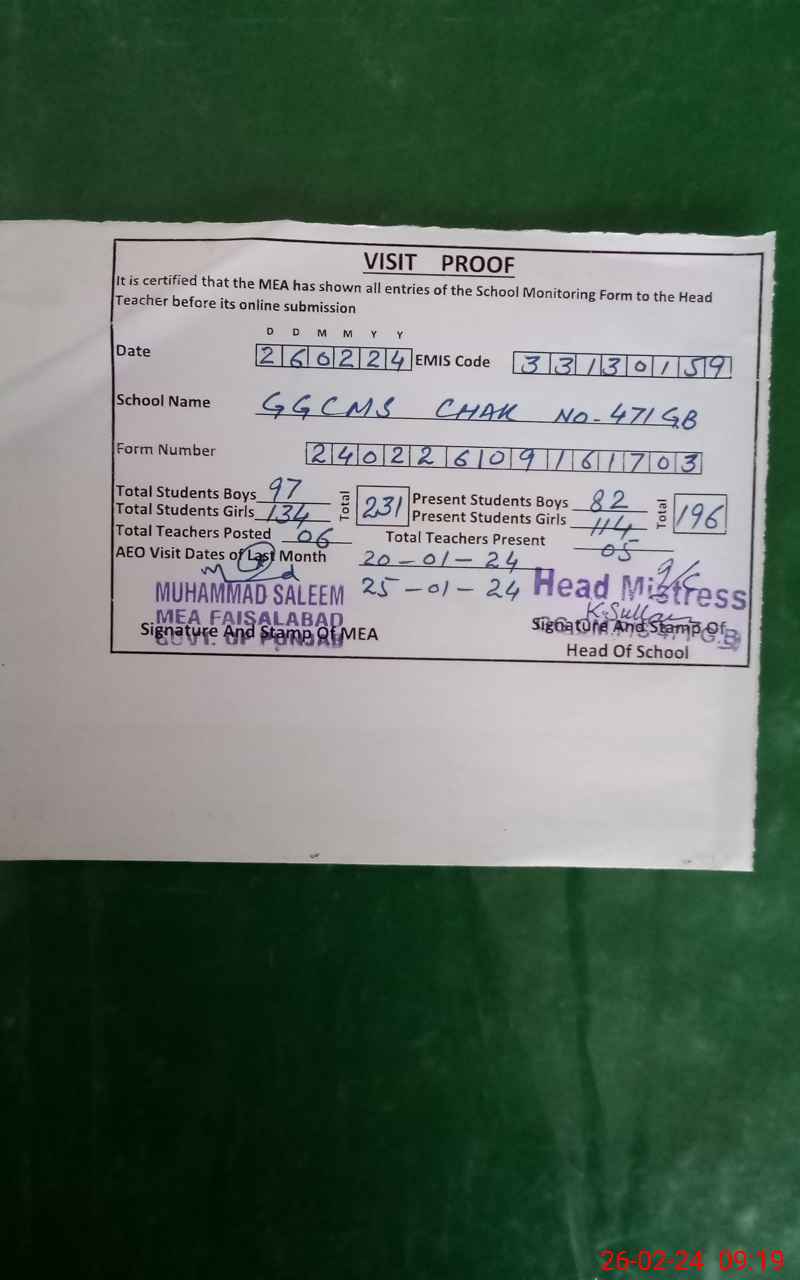 VISIT PROOF
It is certified that the MEA has shown all entries of the School Monitoring Form to the Head
Teacher before its online submission
D D M M Y Y
Date 260224 EMIS Code 33130159
School Name GGCMS CHAK NO-471 GB
Form Number 24022609161703
Total Students Boys 97 Total 231 Present Students Boys 82 Total 196
Total Students Girls 134 Present Students Girls 114
Total Teachers Posted 06 Total Teachers Present 05
AEO Visit Dates of Last Month 20-01-24
25-01-24
MUHAMMAD SALEEM
MEA FAISALABAD
GOVT. OF PUNJAB
Signature And Stamp Of MEA
Head Mistress
Signature And Stamp Of
Head Of School
26-02-24 09:19